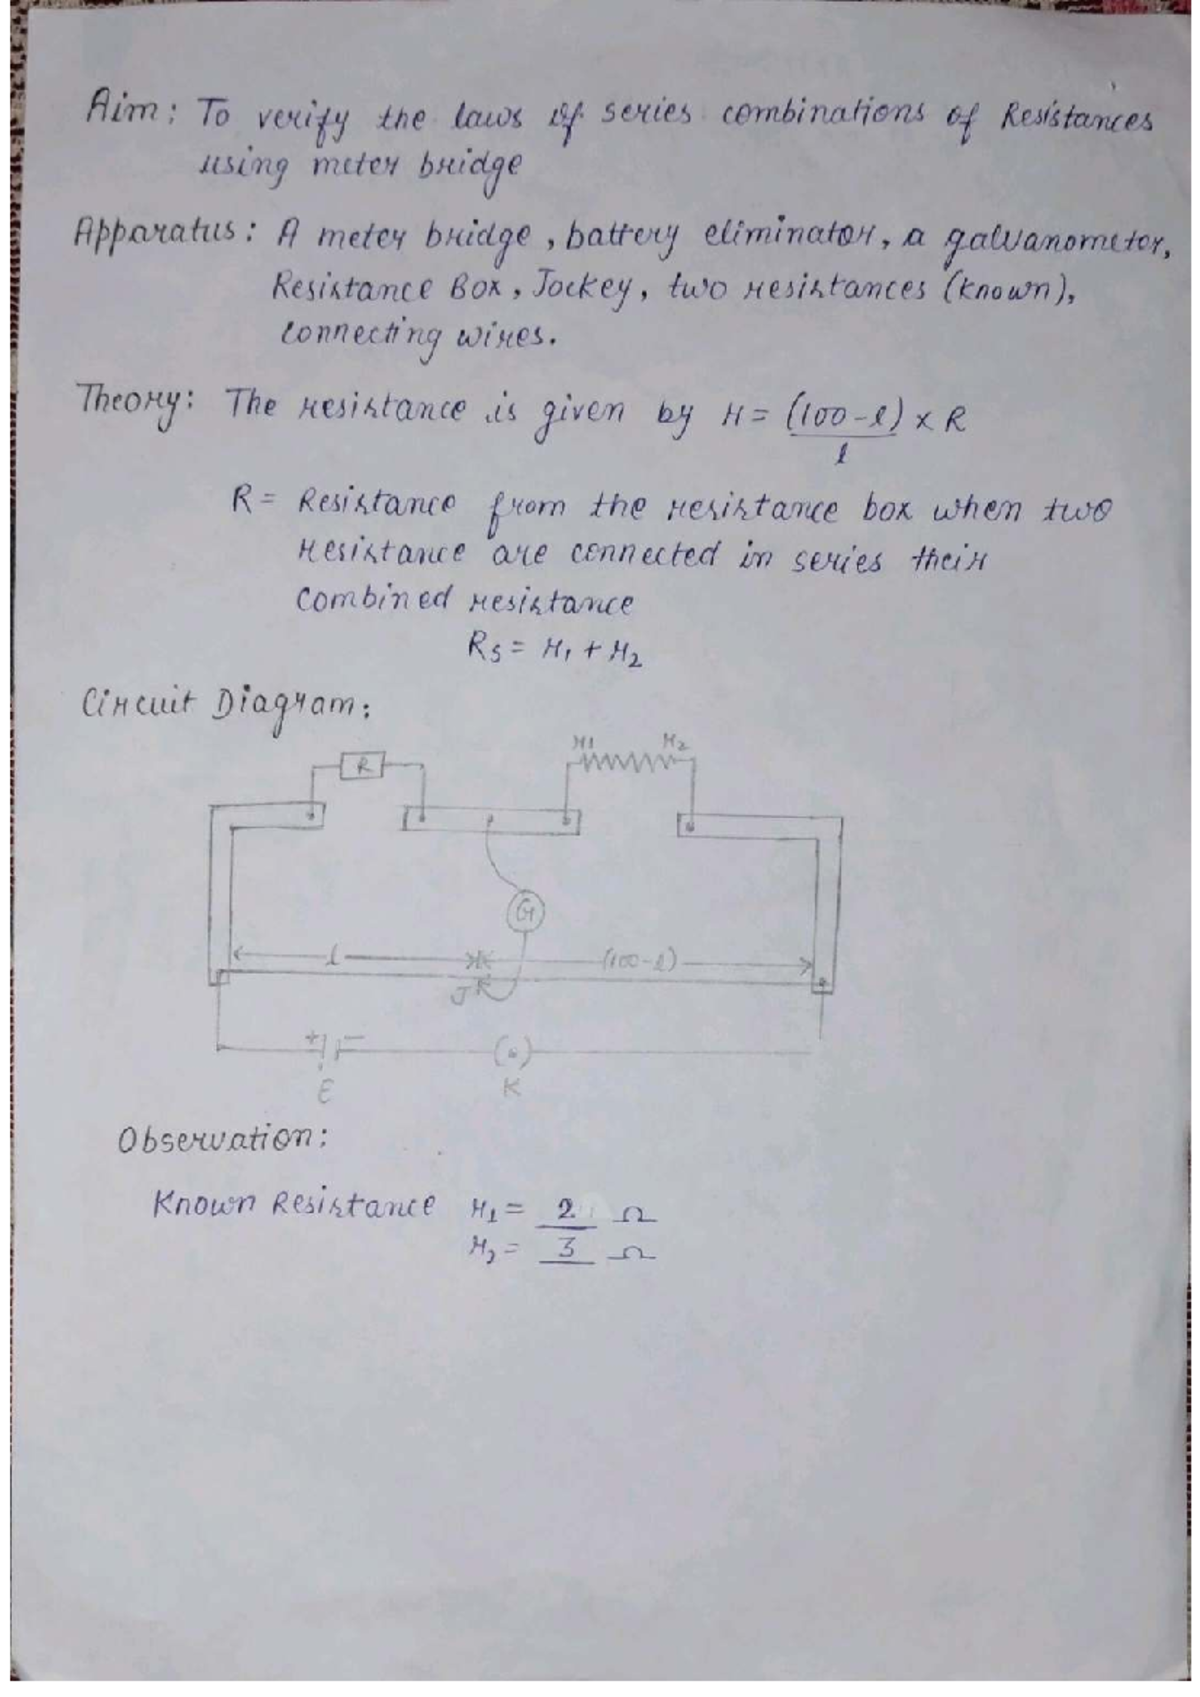 Aim: To verify the laws of series combinations of Resistances
using meter bridge
Apparatus: A meter bridge, battery eliminator, a galvanometer,
Resistance Box, Jockey, two resistances (known),
connecting wires.
Theory: The resistance is given by r = (100-l) x R
l
R = Resistance from the resistance box when two
resistance are connected in series their
combined resistance
Rs = r1 + r2
Circuit Diagram:
R r1 r2
G
l (100-l)
J
+ -
E K
Observation:
Known Resistance r1 = 2 Ω
r2 = 3 Ω